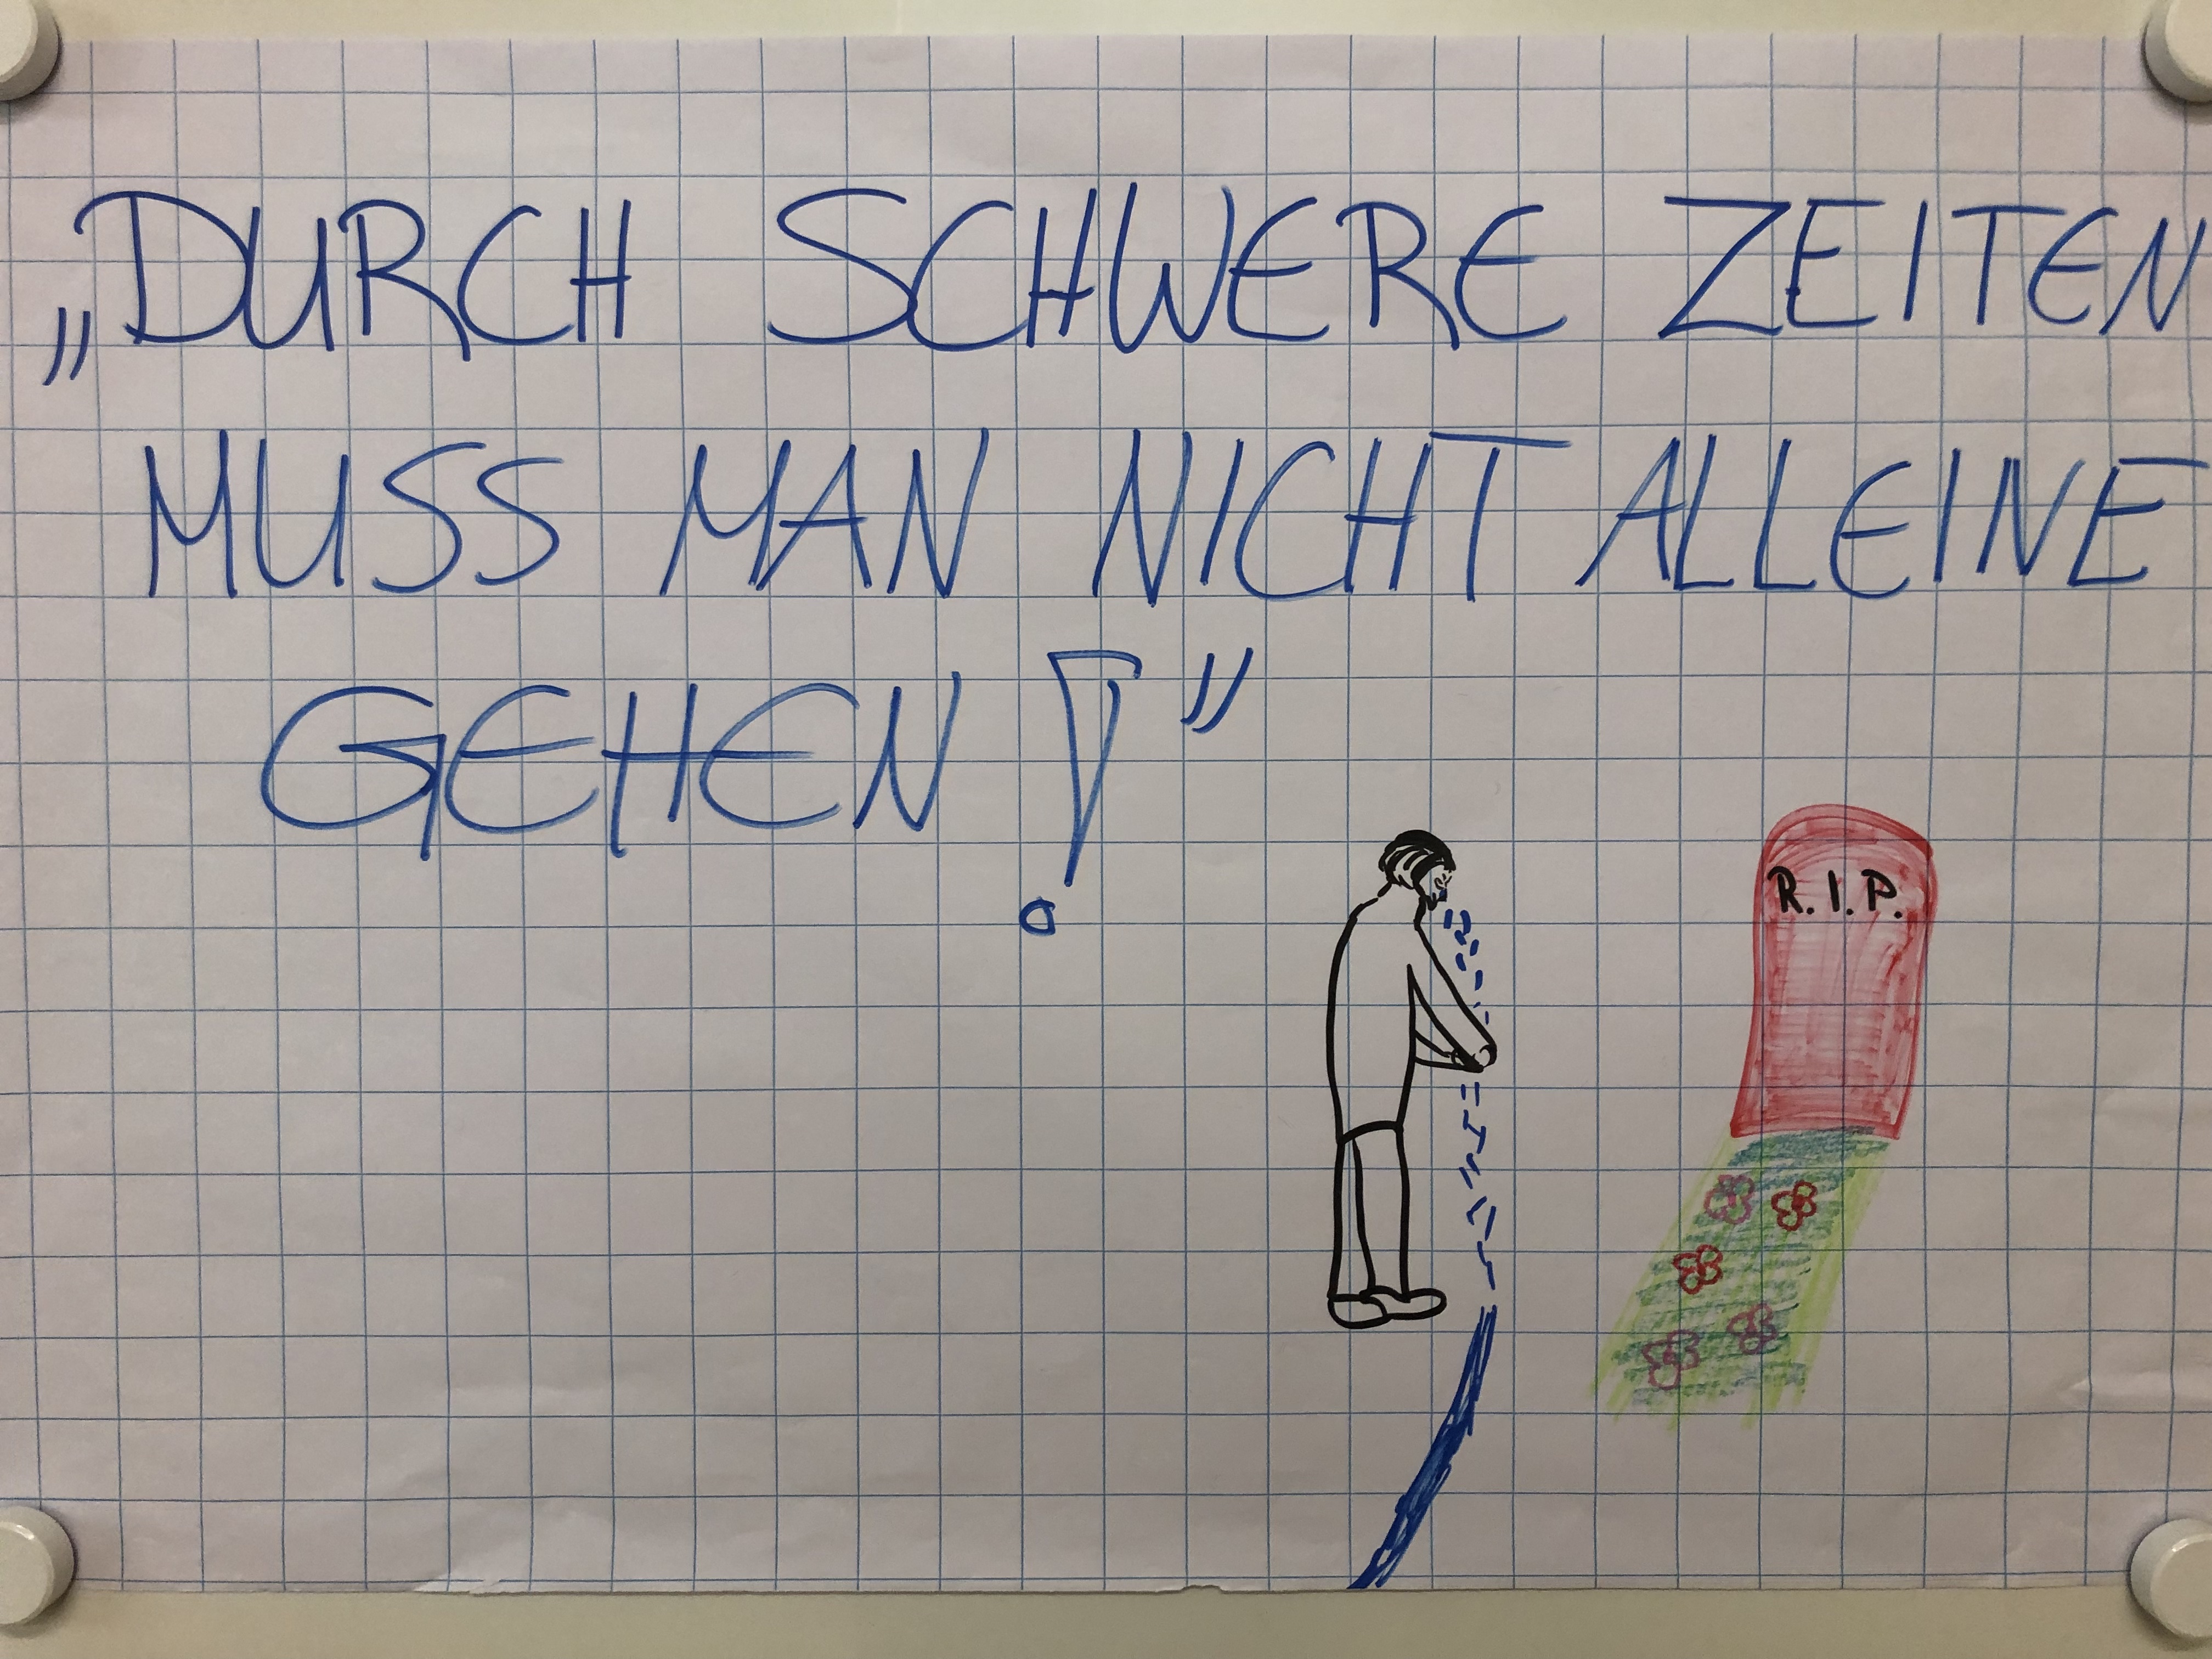 „DURCH SCHWERE ZEITEN
MUSS MAN NICHT ALLEINE
GEHEN!”
R.I.P.